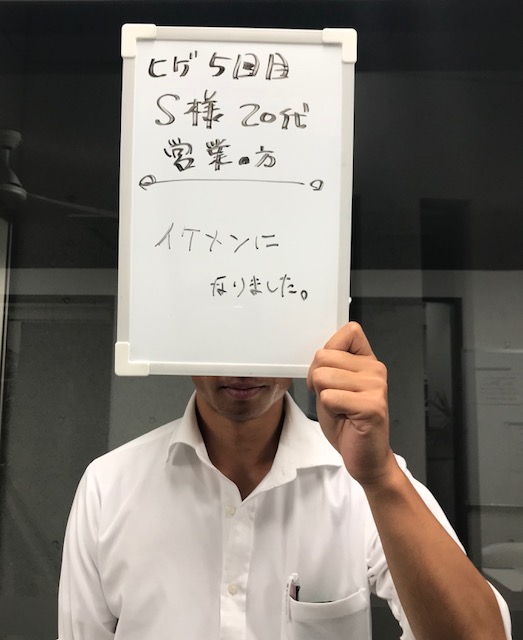 ヒゲ5回目
S様 20代
営業の方
イケメンに
なりました。